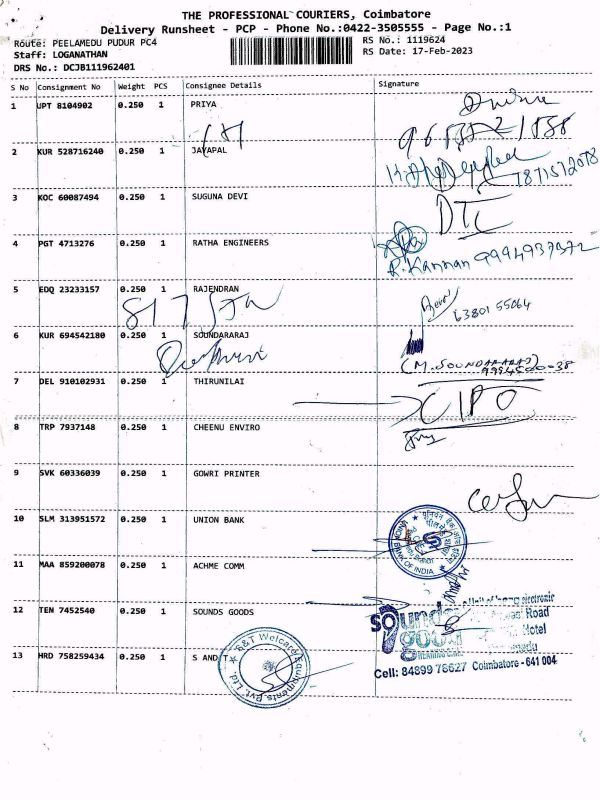 THE PROFESSIONAL COURIERS, Coimbatore
Delivery Runsheet - PCP - Phone No.:0422-3505555 - Page No.:1
Route: PEELAMEDU PUDUR PC4
RS No.: 1119624
Staff: LOGANATHAN
RS Date: 17-Feb-2023
DRS No.: DCJB111962401
S No Consignment No Weight PCS Consignee Details Signature
1 UPT 8104902 0.250 1 PRIYA
2 KUR 528716240 0.250 1 JAYAPAL
3 KOC 60087494 0.250 1 SUGUNA DEVI
DTC
4 PGT 4713276 0.250 1 RATHA ENGINEERS
R. Kannan 9994937372
5 EDQ 23233157 0.250 1 RAJENDRAN
6380155064
6 KUR 694542180 0.250 1 SOUNDARARAJ
(M. SOUNDARARAJ)
7 DEL 910102931 0.250 1 THIRUNILAI
CIPO
8 TRP 7937148 0.250 1 CHEENU ENVIRO
9 SVK 60336039 0.250 1 GOWRI PRINTER
10 SLM 313951572 0.250 1 UNION BANK
BANK OF INDIA
11 MAA 859200078 0.250 1 ACHME COMM
12 TEN 7452540 0.250 1 SOUNDS GOODS
electronic
Road
Hotel
Cell: 84899 76627 Coimbatore - 641 004
13 HRD 758259434 0.250 1 S AND T
S&T Welcare Equipments Pvt. Ltd.